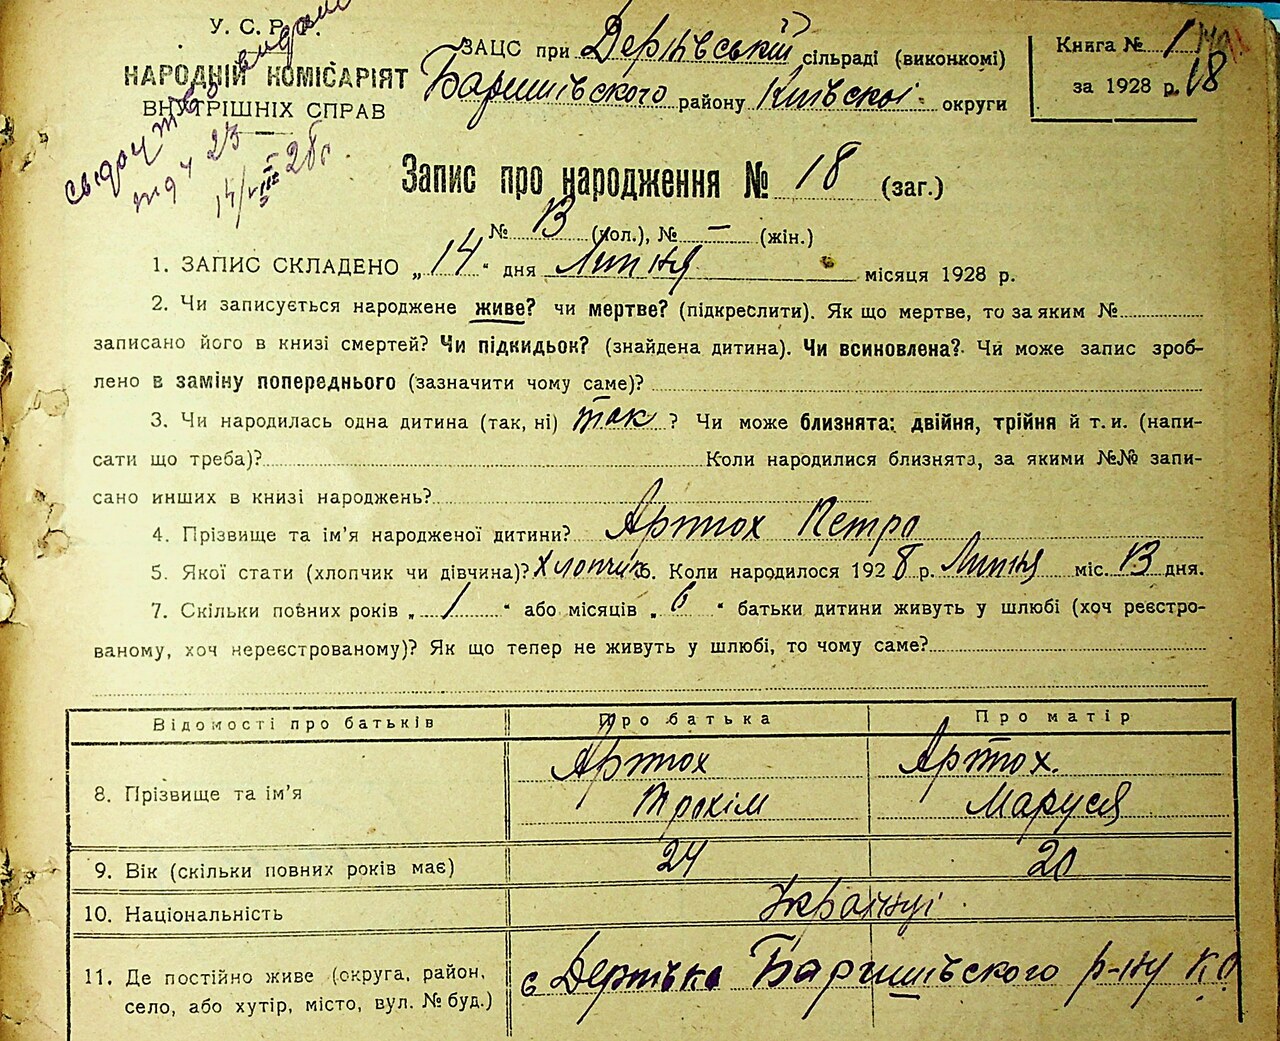 У. С. Р. Р.
НАРОДНІЙ КОМІСАРІЯТ
ВНУТРІШНІХ СПРАВ
видано
14/VIII 28 г.
ЗАЦС при сільраді (виконкомі)
Баришівського району Київської округи
Книга № 1
за 1928 р. 18
Запис про народження № 18 (заг.)
№ 13 (чол.), № – (жін.)
1. ЗАПИС СКЛАДЕНО „ 14 " дня Липня місяця 1928 р.
2. Чи записується народжене живе? чи мертве? (підкреслити). Як що мертве, то за яким №
записано його в книзі смертей? Чи підкидьок? (знайдена дитина). Чи всиновлена? Чи може запис зроб-
лено в заміну попереднього (зазначити чому саме)?
3. Чи народилась одна дитина (так, ні) так ? Чи може близнята: двійня, трійня й т. и. (напи-
сати що треба)? Коли народилися близнята, за якими №№ запи-
сано инших в книзі народжень?
4. Прізвище та ім'я народженої дитини? Артюх Петро
5. Якої стати (хлопчик чи дівчина)? хлопчик 6. Коли народилося 1928 р. Липня міс. 13 дня.
7. Скільки повних років „ 1 " або місяців „ 6 " батьки дитини живуть у шлюбі (хоч реєстро-
ваному, хоч нереєстрованому)? Як що тепер не живуть у шлюбі, то чому саме?
Відомості про батьків Про батька Про матір
8. Прізвище та ім'я Артюх Трохім Артюх. Маруся
9. Вік (скільки повних років має) 24 20
10. Національність Українці
11. Де постійно живе (округа, район,
село, або хутір, місто, вул. № буд.) с Баришівського р-ну К.О